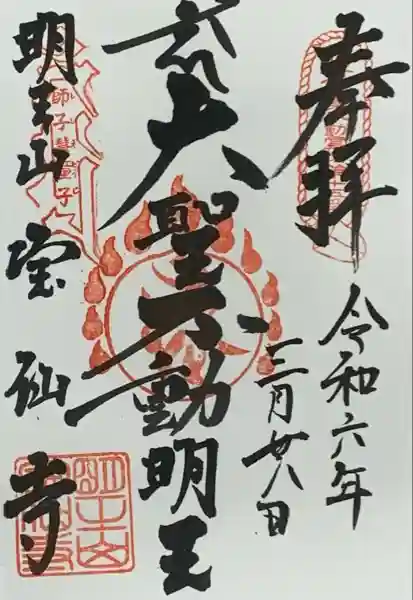 奉拝
令和六年
三月廿八日
大聖不動明王
明王山
宝仙寺
師子慧童子